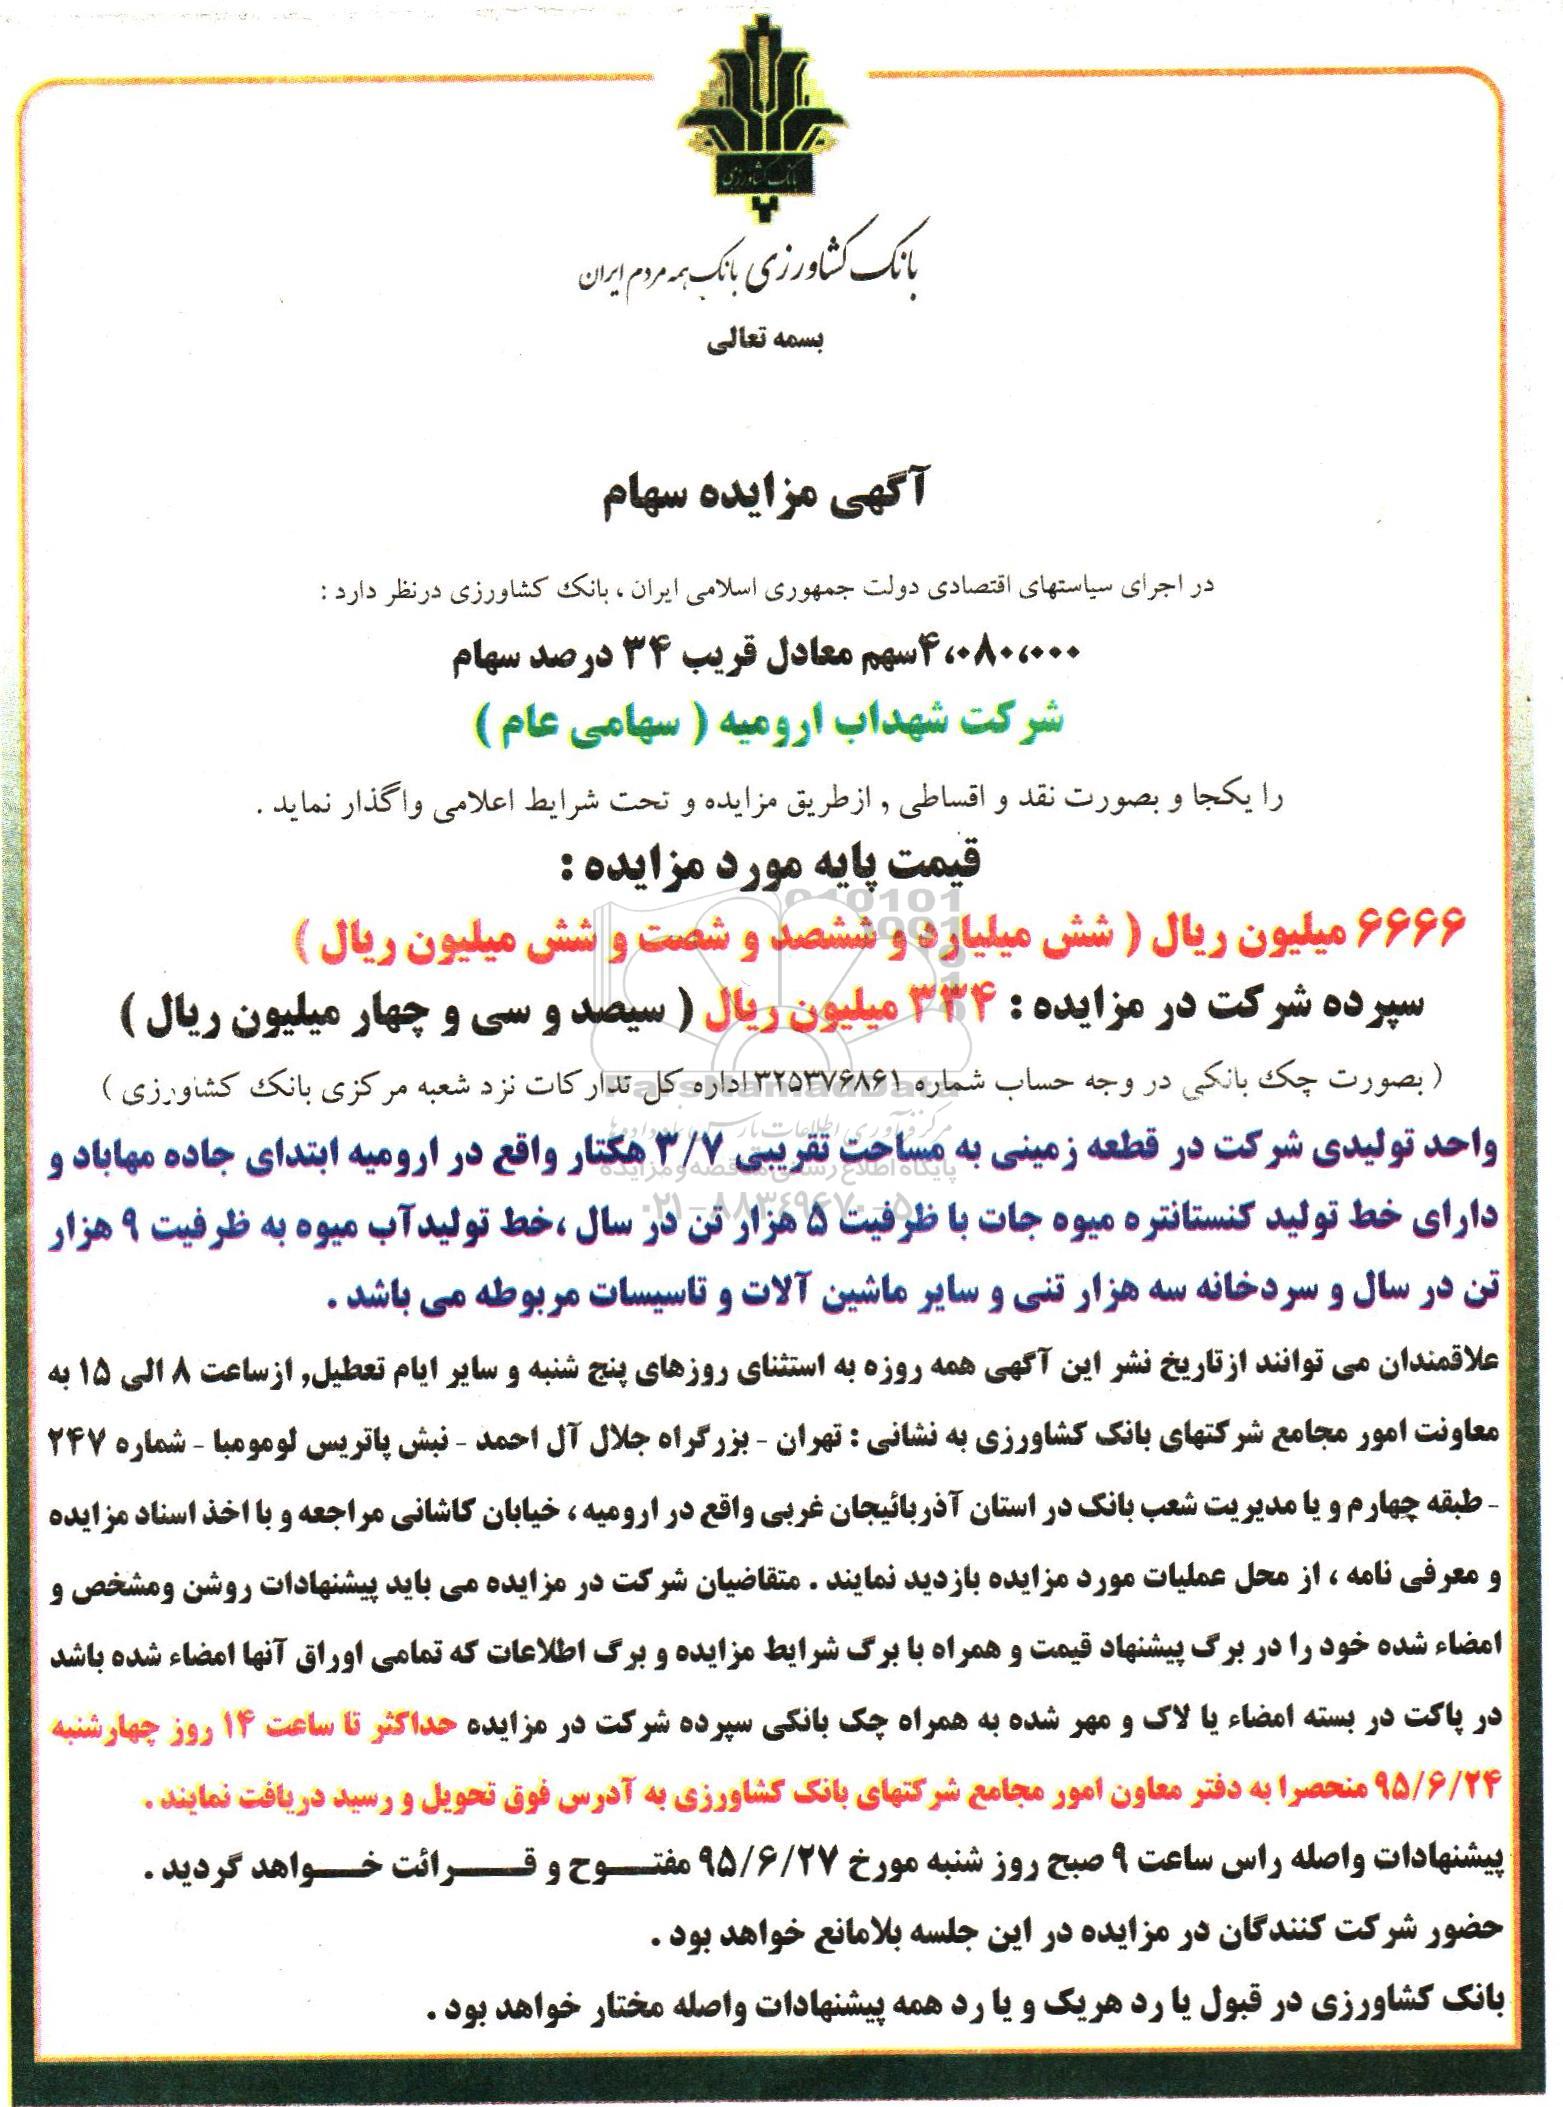 بانک کشاورزی
بانک کشاورزی بانک همه مردم ایران
بسمه تعالی
آگهی مزایده سهام
در اجرای سیاستهای اقتصادی دولت جمهوری اسلامی ایران ، بانک کشاورزی درنظر دارد :
۴،۰۸۰،۰۰۰سهم معادل قریب ۳۴ درصد سهام
شرکت شهداب ارومیه ( سهامی عام )
را یکجا و بصورت نقد و اقساطی , ازطریق مزایده و تحت شرایط اعلامی واگذار نماید .
قیمت پایه مورد مزایده :
۶۶۶۶ میلیون ریال ( شش میلیارد و ششصد و شصت و شش میلیون ریال )
سپرده شرکت در مزایده : ۳۳۴ میلیون ریال ( سیصد و سی و چهار میلیون ریال )
( بصورت چک بانکی در وجه حساب شماره ۳۲۵۳۷۶۸۶۱ اداره کل تدارکات نزد شعبه مرکزی بانک کشاورزی )
ParsNamadData
مرکز فرآوری اطلاعات پارس نماد داده ها
واحد تولیدی شرکت در قطعه زمینی به مساحت تقریبی ۳/۷ هکتار واقع در ارومیه ابتدای جاده مهاباد و
پایگاه اطلاع رسانی مناقصه و مزایده
۰۲۱-۸۸۳۴۹۶۷۰-۵
دارای خط تولید کنستانتره میوه جات با ظرفیت ۵ هزار تن در سال ،خط تولیدآب میوه به ظرفیت ۹ هزار
تن در سال و سردخانه سه هزار تنی و سایر ماشین آلات و تاسیسات مربوطه می باشد .
علاقمندان می توانند ازتاریخ نشر این آگهی همه روزه به استثنای روزهای پنج شنبه و سایر ایام تعطیل, ازساعت ۸ الی ۱۵ به
معاونت امور مجامع شرکتهای بانک کشاورزی به نشانی : تهران - بزرگراه جلال آل احمد - نبش پاتریس لومومبا - شماره ۲۴۷
- طبقه چهارم و یا مدیریت شعب بانک در استان آذربائیجان غربی واقع در ارومیه ، خیابان کاشانی مراجعه و با اخذ اسناد مزایده
و معرفی نامه ، از محل عملیات مورد مزایده بازدید نمایند . متقاضیان شرکت در مزایده می باید پیشنهادات روشن ومشخص و
امضاء شده خود را در برگ پیشنهاد قیمت و همراه با برگ شرایط مزایده و برگ اطلاعات که تمامی اوراق آنها امضاء شده باشد
در پاکت در بسته امضاء یا لاک و مهر شده به همراه چک بانکی سپرده شرکت در مزایده حداکثر تا ساعت ۱۴ روز چهارشنبه
۹۵/۶/۲۴ منحصرا به دفتر معاون امور مجامع شرکتهای بانک کشاورزی به آدرس فوق تحویل و رسید دریافت نمایند .
پیشنهادات واصله راس ساعت ۹ صبح روز شنبه مورخ ۹۵/۶/۲۷ مفتـــوح و قــــرائت خـــواهد گردید .
حضور شرکت کنندگان در مزایده در این جلسه بلامانع خواهد بود .
بانک کشاورزی در قبول یا رد هریک و یا رد همه پیشنهادات واصله مختار خواهد بود .